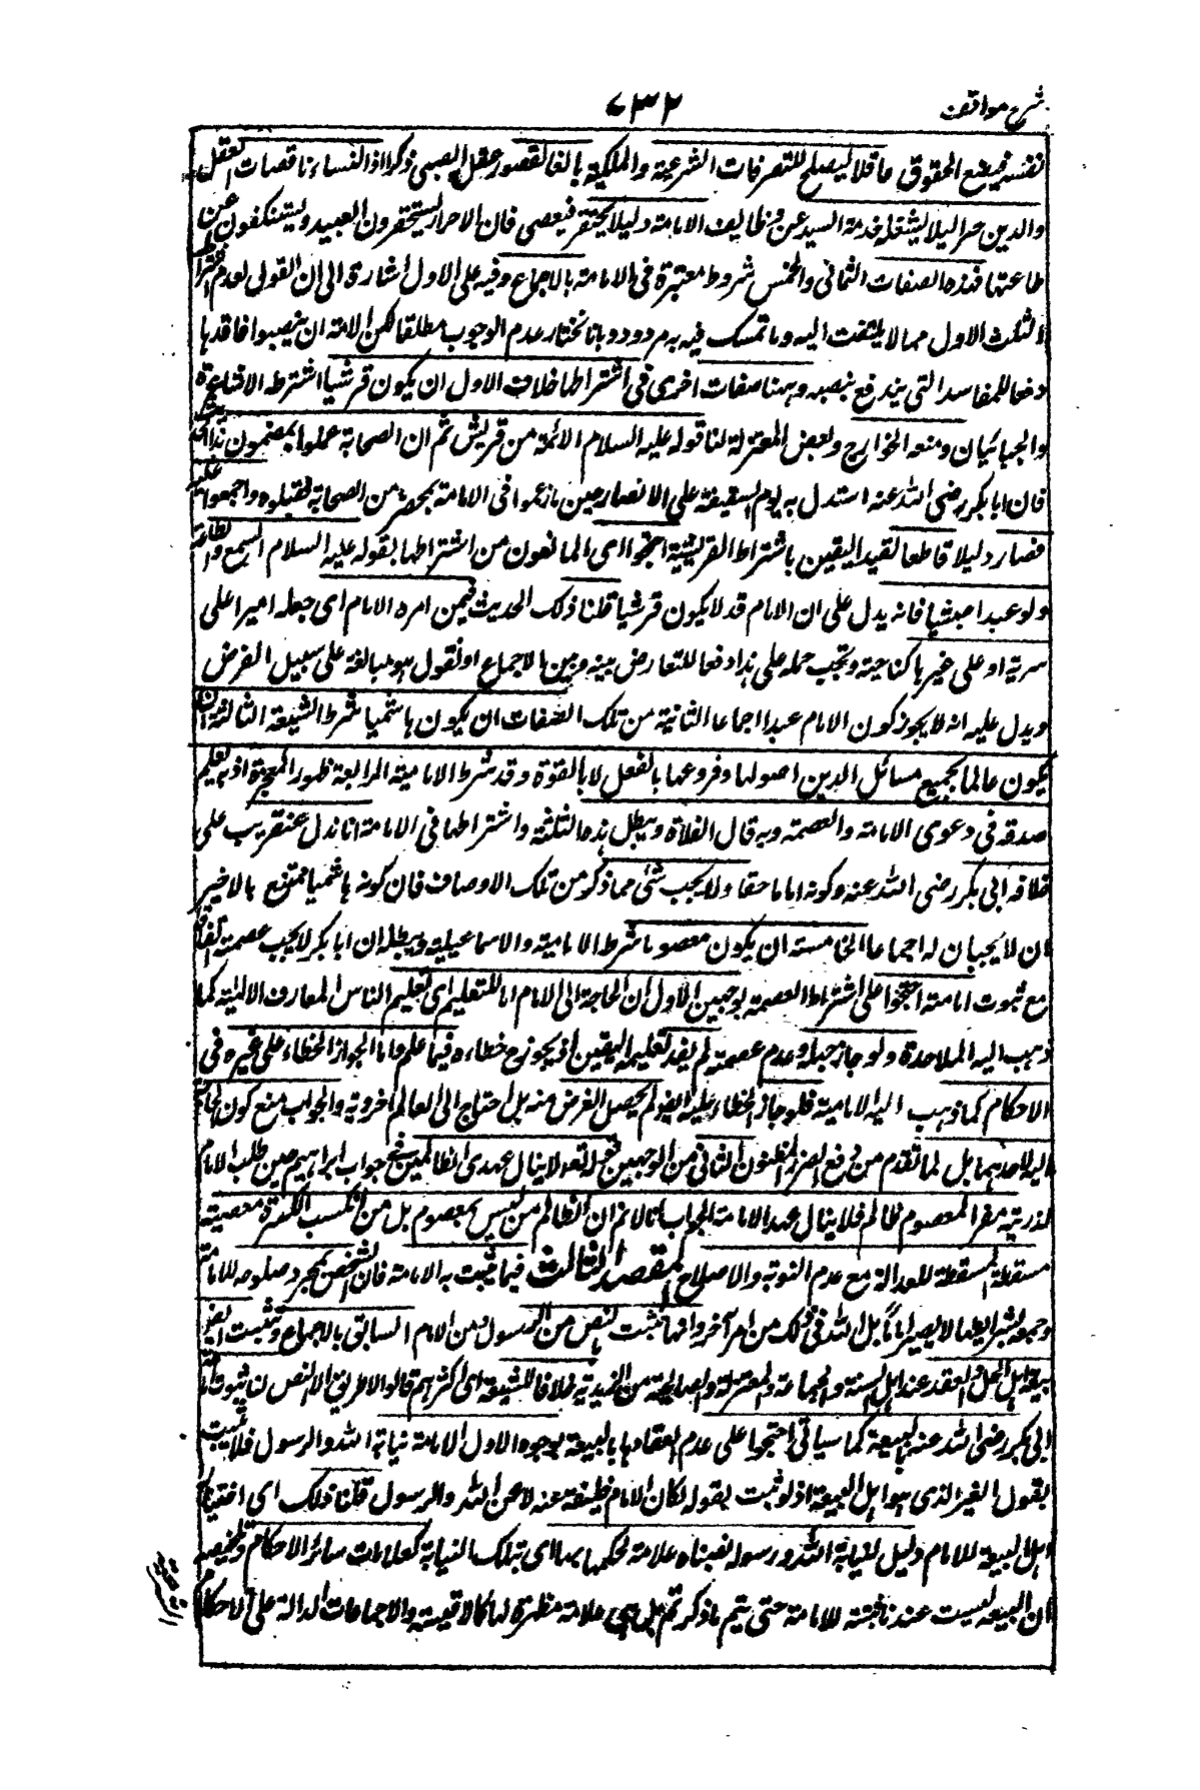 شرح مواقف
٧٣٢
نفسه فيضيع الحقوق عاقلا ليصلح للتصرفات الشرعية والملكية بالغا لقصور عقل الصبى ذكرا اذ النساء ناقصات العقل
والدين حرا لئلا يشغله خدمة السيد عن وظائف الامامة ولئلا يحتقر فيعصى فان الاحرار يستحقرون العبيد ويستنكفون عن
طاعتها فهذه الصفات الثمانى والخمس شروط معتبرة فى الامامة بالاجماع وفيه على الاول اشارة الى ان القول بعدم اشتراط
الثلث الاول مما لا يلتفت اليه وما تمسك فيه به مردود بانا نختار عدم الوجوب مطلقا لكن للامة ان ينصبوا فاقدها
دفعا للمفاسد التى يندفع بنصبه وههنا صفات اخرى فى اشتراطها خلاف الاول ان يكون قرشيا اشترطه الاشاعرة
والجبائيان ومنعه الخوارج وبعض المعتزلة لنا قوله عليه السلام الائمة من قريش ثم ان الصحابة عملوا بمضمون هذا الحديث
فان ابا بكر رضى الله عنه استدل به يوم السقيفة على الانصار حين نازعوا فى الامامة بمحضر من الصحابة فقبلوه واجمعوا عليه
فصار دليلا قاطعا لفيد اليقين باشتراط القرشية احتجوا اى المانعون من اشتراطها بقوله عليه السلام السمع والطاعة
ولو عبدا حبشيا فانه يدل على ان الامام قد لا يكون قرشيا قلنا ذلك الحديث فيمن امره الامام اى جعله اميرا على
سرية او على غيرها كناحية ويجب حمله على هذا دفعا للتعارض بينه وبين الاجماع او نقول هو مبالغة على سبيل الفرض
ويدل عليه انه لا يجوز كون الامام عبدا اجماعا الثانية من تلك الصفات ان يكون هاشميا شرط الشيعة الثالثة ان
يكون عالما بجميع مسائل الدين اصولها وفروعها بالفعل لا بالقوة وقد شرط الامامية الرابعة ظهور المعجزة اذ به يعلم
صدقه فى دعوى الامامة والعصمة وبه قال الغلاة ويبطل هذه الثلثة واشتراطها فى الامامة انا ندل عنقريب على
خلافه ابى بكر رضى الله عنه وكونه اماما حقا ولا يجب شئ مما ذكر من تلك الاوصاف فان كونه هاشميا ممتنع بالاخير
ان لا يجبان له اجماعا الخامسة ان يكون معصوما شرط الامامية والاسماعيلية ويبطله ان ابا بكر لا يجب عصمته اتفاقا
مع ثبوت امامته احتجوا على اشتراط العصمة بوجهين الاول ان الحاجة الى الامام اما للتعليم اى تعليم الناس المعارف الالهية كما
ذهب اليه الملاحدة ولو جاز جهله وعدم عصمته لم يفد تعليمه اليقين اذ يجوز ح خطاءه فيما علم واما لجواز الخطاء على غيره فى
الاحكام كما ذهب اليه الامامية فلو جاز الخطاء عليه ايضا لم يحصل الغرض منه بل احتاج الى العالم اخر وبه والجواب منع كون الحاجة
اليه لاحدهما بل لما تقدم من دفع الضرر المظنون الثانى من الوجهين قوله تعالى لا ينال عهدى الظالمين فى جواب ابراهيم حين طلب الامامة
لذريته وغير المعصوم ظالم فلا ينال عهد الامامة الجواب انا لا نم ان الظالم من ليس بمعصوم بل من ارتكب الكبيرة معصية
مسقطة المسقطة للعدالة مع عدم التوبة والاصلاح المقصد الثالث فيما يثبت به الامامة فان الشخص بمجرد صلوحه للامامة
وجمعه لشرائطها لا يصير اماما بل لا بد فى ذلك من امر آخر وانها تثبت بالنص من الرسول ومن الامام السابق بالاجماع وتثبت ايضا
ببيعة اهل الحل والعقد عند اهل السنة والجماعة والمعتزلة والصالحية من الزيدية خلافا للشيعة اى اكثرهم قالوا لا طريق الا النص لنا ثبوت امامة
ابى بكر رضى الله عنه بالبيعة كما سيأتى احتجوا على عدم انعقادها بالبيعة بوجوه الاول الامامة نيابة الله والرسول فلا يثبت
بقول الغير الذى هو اهل البيعة اذ لو ثبت بقوله لكان الامام خليفة عنه لا عن الله والرسول قلنا ذلك اى اختيار
اهل البيعة للامام دليل لنيابة الله ورسوله نصبناه علامة لحكمها بها اى بتلك النيابة كعلامات سائر الاحكام وتلخيصه
ان البيعة ليست عندنا مثبتة للامامة حتى يتم ما ذكرتم بل هى علامة مظهرة لها كالاقيسة والاجماعات الدالة على الاحكام